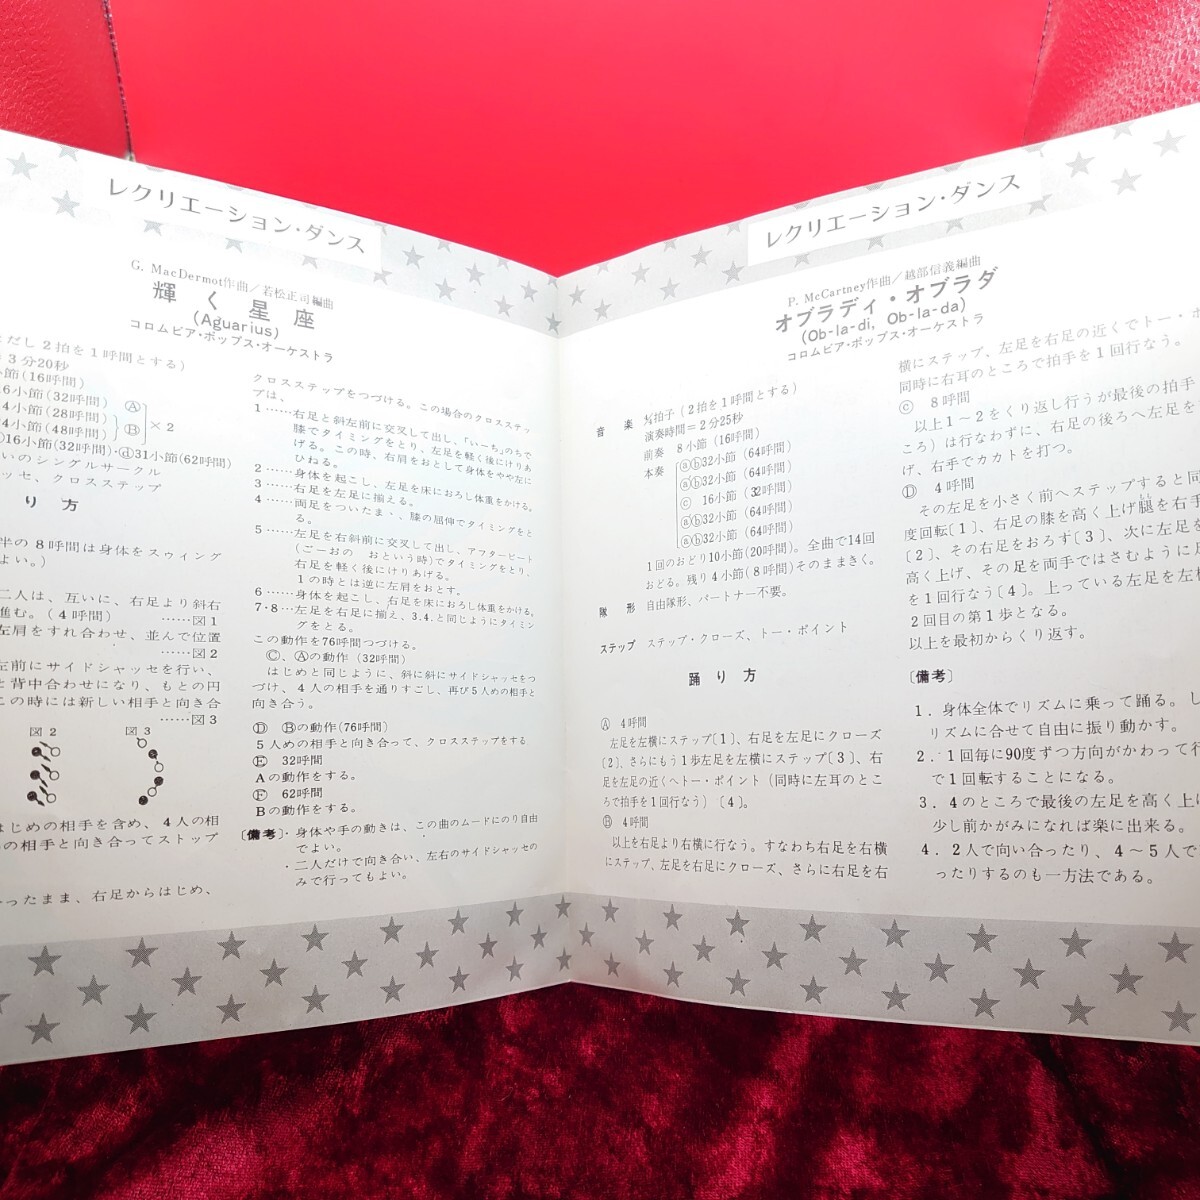 レクリエーション・ダンス
G. MacDermot作曲／若松正司編曲
輝く星座
(Aguarius)
コロムビア・ポップス・オーケストラ
だし2拍を1呼間とする)
3分20秒
小節(16呼間)
6小節(32呼間) Ⓐ
4小節(28呼間)
4小節(48呼間) Ⓑ ×2
16小節(32呼間)・ⓓ31小節(62呼間)
いのシングルサークル
ッセ、クロスステップ
り方
半の8呼間は身体をスウィング
よい。)
二人は、互いに、右足より斜右
進む。(4呼間) ……図1
左肩をすれ合わせ、並んで位置
……図2
左前にサイドシャッセを行い、
と背中合わせになり、もとの円
この時には新しい相手と向き合
……図3
図2 図3
はじめの相手を含め、4人の相
の相手と向き合ってストップ
ったまま、右足からはじめ、
クロスステップをつづける。この場合のクロスステッ
プは、
1……右足と斜左前に交叉して出し、「いーち」のちで
膝でタイミングをとり、左足を軽く後にけりあ
げる。この時、右肩をおとして身体をやや左に
ひねる。
2……身体を起こし、左足を床におろし体重をかける。
3……右足を左足に揃える。
4……両足をついたまゝ、膝の屈伸でタイミングをと
る。
5……左足を右斜前に交叉して出し、アフタービート
(ごーおの おという時)でタイミングをとり、
右足を軽く後にけりあげる。
1の時とは逆に左肩をおとす。
6……身体を起こし、右足を床におろし体重をかける。
7・8…左足を右足に揃え、3.4.と同じようにタイミン
グをとる。
この動作を76呼間つづける。
Ⓒ、Ⓐの動作 (32呼間)
はじめと同じように、斜に斜にサイドシャッセをつ
づけ、4人の相手を通りすごし、再び5人めの相手と
向き合う。
Ⓓ Ⓑの動作(76呼間)
5人めの相手と向き合って、クロスステップをする
Ⓔ 32呼間
Aの動作をする。
Ⓕ 62呼間
Bの動作をする。
〔備考〕・身体や手の動きは、この曲のムードにのり自由
でよい。
・二人だけで向き合い、左右のサイドシャッセの
みで行ってもよい。
レクリエーション・ダンス
P. McCartney作曲／越部信義編曲
オブラディ・オブラダ
(Ob-la-di, Ob-la-da)
コロムビア・ポップス・オーケストラ
音楽 4/4拍子(2拍を1呼間とする)
演奏時間＝2分25秒
前奏 8小節(16呼間)
本奏 ⓐⓑ32小節 (64呼間)
ⓐⓑ32小節 (64呼間)
ⓒ 16小節 (32呼間)
ⓐⓑ32小節 (64呼間)
ⓐⓑ32小節 (64呼間)
1回のおどり10小節(20呼間)。全曲で14回
おどる。残り4小節(8呼間)そのままきく。
隊形 自由隊形、パートナー不要。
ステップ ステップ・クローズ、トー・ポイント
踊り方
Ⓐ 4呼間
左足を左横にステップ〔1〕、右足を左足にクローズ
〔2〕、さらにもう1歩左足を左横にステップ〔3〕、右
足を左足の近くへトー・ポイント(同時に左耳のとこ
ろで拍手を1回行なう)〔4〕。
Ⓑ 4呼間
以上を右足より右横に行なう。すなわち右足を右横
にステップ、左足を右足にクローズ、さらに右足を右
横にステップ、左足を右足の近くでトー・ポ
同時に右耳のところで拍手を1回行なう。
Ⓒ 8呼間
以上1～2をくり返し行うが最後の拍手
ころ)は行なわずに、右足の後ろへ左足を
げ、右手でカカトを打つ。
Ⓓ 4呼間
その左足を小さく前へステップすると同
度回転〔1〕、右足の膝を高く上げ腿を右手
〔2〕、その右足をおろす〔3〕、次に左足を
高く上げ、その足を両手ではさむように
を1回行なう〔4〕。上っている左足を左横
2回目の第1歩となる。
以上を最初からくり返す。
〔備考〕
1．身体全体でリズムに乗って踊る。し
リズムに合せて自由に振り動かす。
2．1回毎に90度ずつ方向がかわって行
で1回転することになる。
3．4のところで最後の左足を高く上げ
少し前かがみになれば楽に出来る。
4．2人で向い合ったり、4～5人で
ったりするのも一方法である。